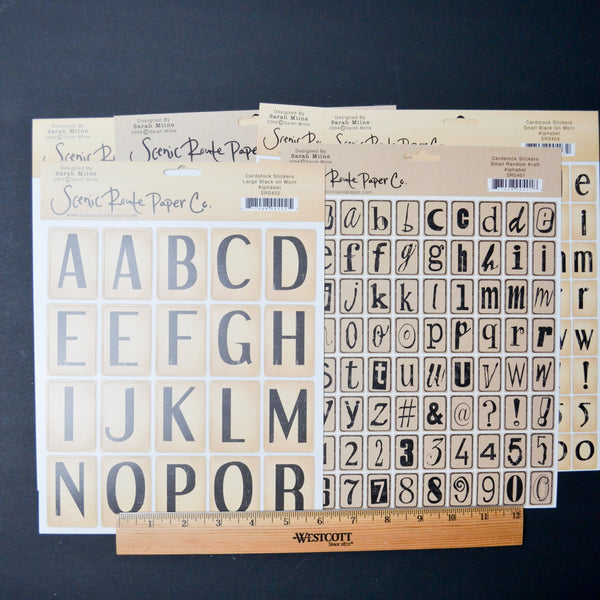 Designed By
Sarah Milne
2004©Sarah Milne
Scenic Ro
Designed By
Sarah Milne
2004©Sarah Milne
Scenic Route Paper
Designed By
Sarah Milne
2004©Sarah Milne
Scenic
Designed By
Sarah Milne
2004©Sarah Milne
Cardstock Stickers
Small Black on Worn
Alphabet
SRS403
Designed By
Sarah Milne
2004©Sarah Milne
Scenic Route Paper Co.
www.scenicroutepaper.com
Cardstock Stickers
Large Black on Worn
Alphabet
SRS402
Designed By
Sarah Milne
Route Paper Co.
Cardstock Stickers
Small Random Kraft
Alphabet
SRS401
A A B C D
E E F G H
I J K L M
N O P Q R
a b b c c d e @
e f f g h i i
j k k l l m m m
n o o o p p q r r
t t t u u U v v
y y z # & @ ? ! !
1 2 2 3 3 4 5 5
6 7 7 8 8 9 9 0 0
e
m
!
1 2 3 4 5 6 7 8 9 10 11 12
WESTCOTT
Since 1872